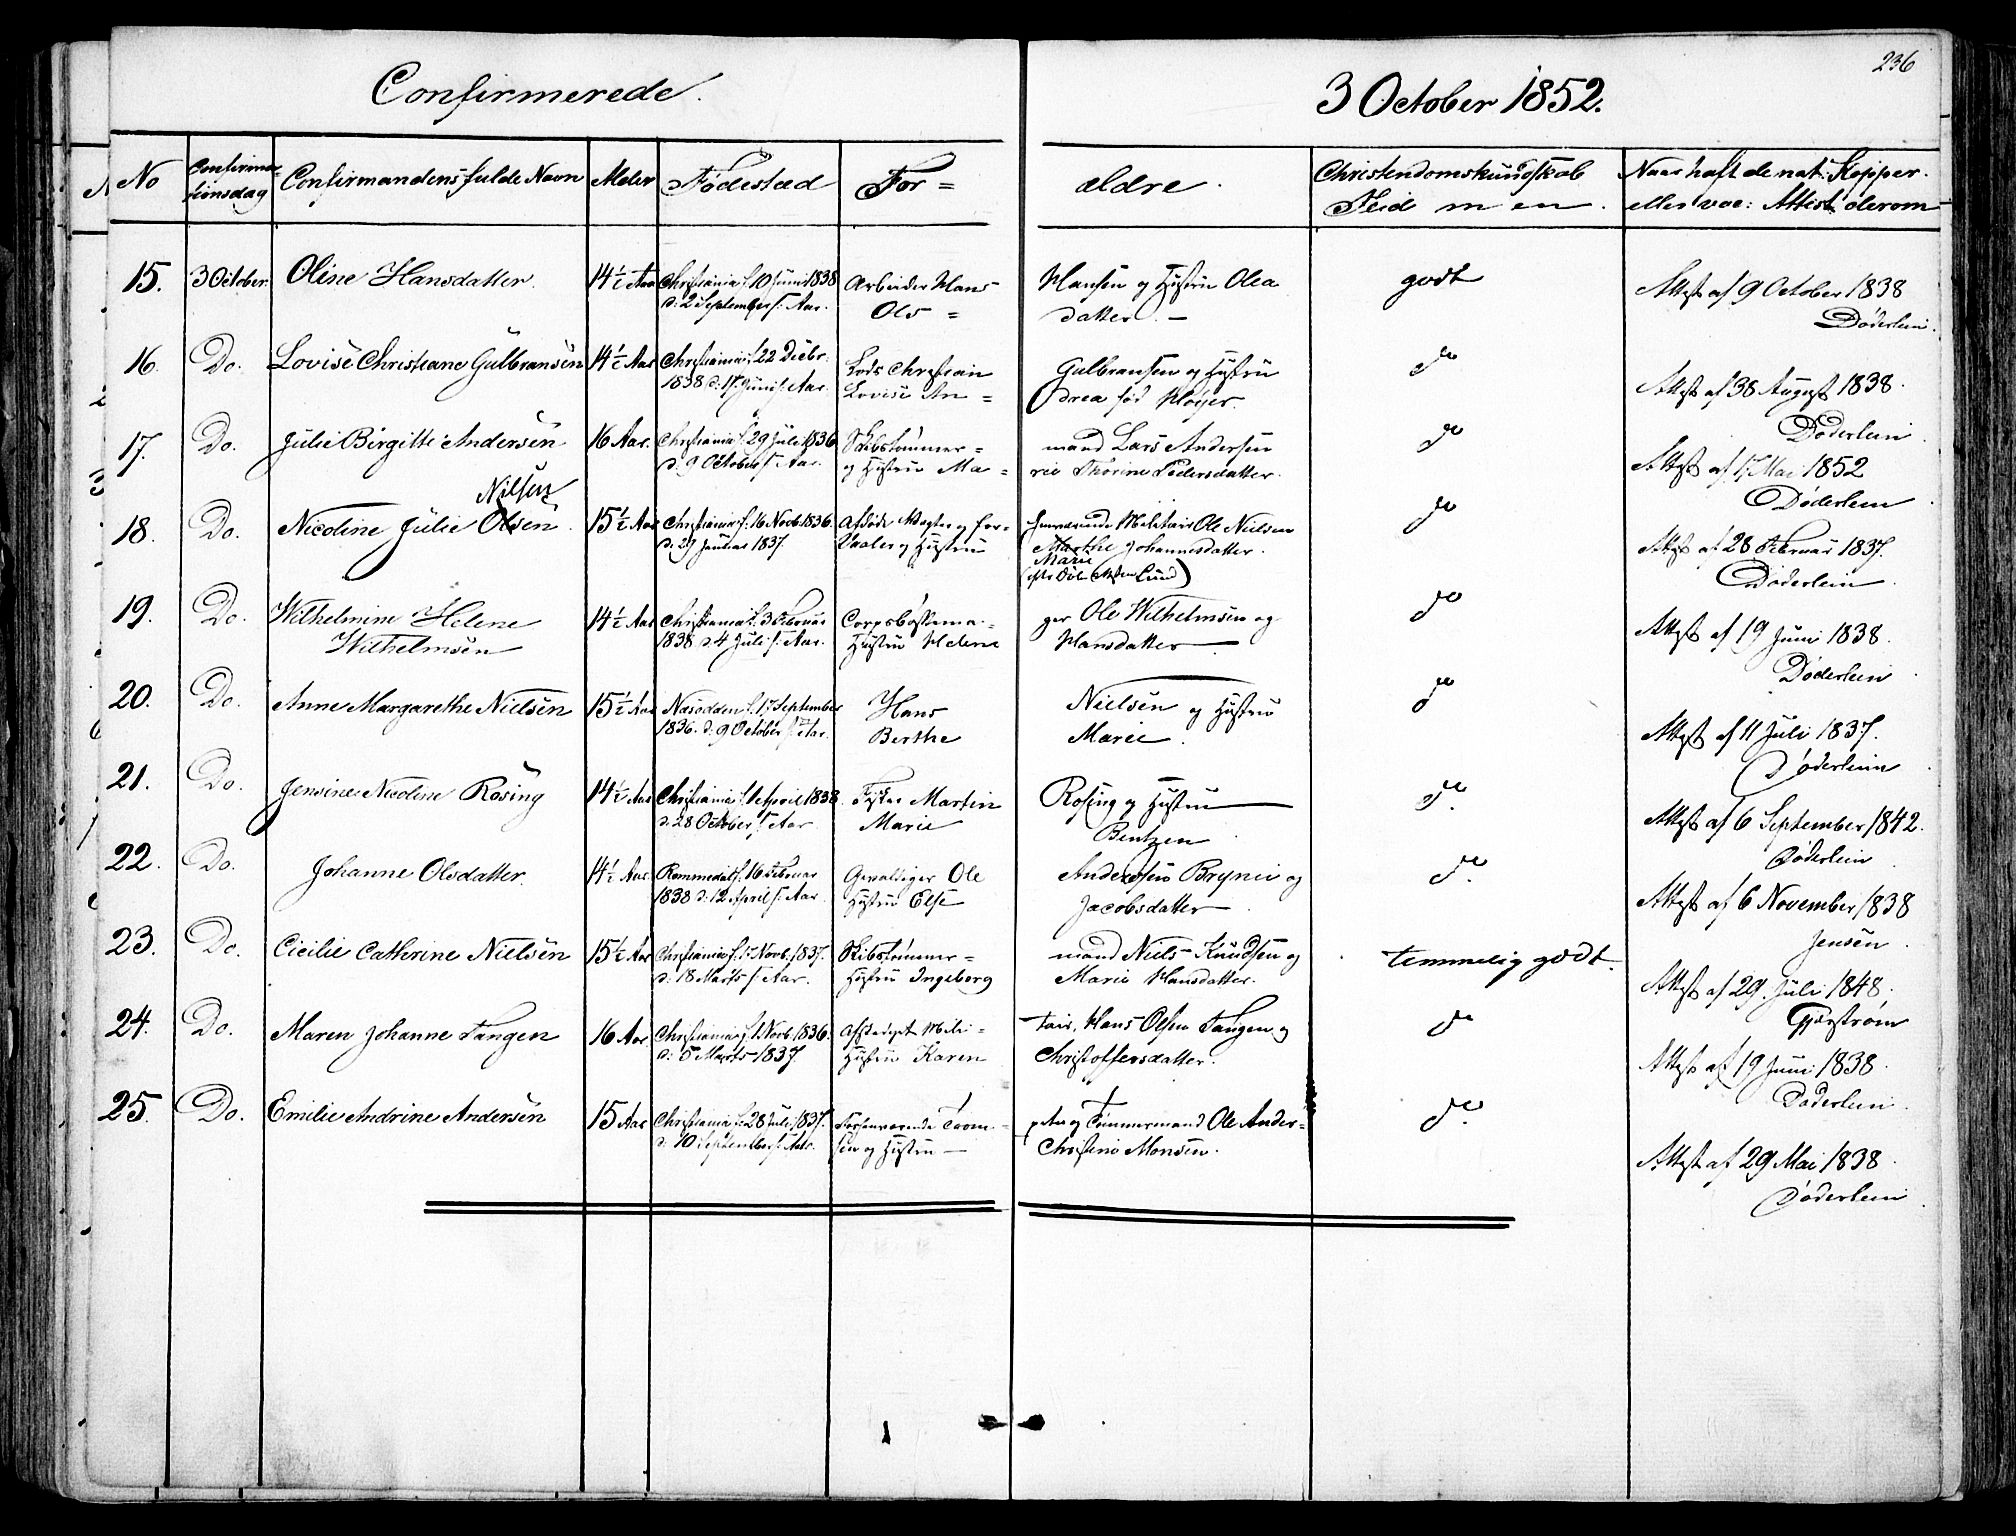 236
Confirmerede. 3 October 1852.
No Confirmationsdag Confirmandens fulde Navn Alder Fødested For = ældre. Christendomskundskab Naar haft de nat: Kopper
Fleid m en. eller vac: Attest derom
15. 3 October. Oline Hansdatter. 14½ Aar Christiania f. 10 Juni 1838 Arbeider Hans Hansen og Hustru Olea godt Attest af 9 October 1838
d: 2 September s: Aar. Ols = datter. — Døderlein.
16. Do. Lovise Christiane Gulbransen 14½ Aar Christiania f. 22 Decbr. Lods Christian Gulbransen og Hustru do Attest af 38 August 1838.
1838 d: 17 Juni s. Aar. Lovise An = drea fød Høyer. Døderlein
17. Do. Julie Birgitte Andersen 16 Aar. Christiania f. 29 Juli 1836 Skibstømmer = mand Lars Andersen do Attest af 17 Mai 1852
d: 9 October s. Aar. og Hustru Ma = rie Thorine Pedersdatter. Døderlein
Nilsen
18. Do. Nicoline Julie Olsen. 15½ Aar Christiania f. 16 Novb. 1836. Afdøde Vægter og for = henværende Militair Ole Nielsen do Attest af 28 Februar 1837.
d: 29 Januar 1837. Vaaler og Hustru Marthe Johannesdatter. Døderlein.
Marie
Lund)
19. Do. Wilhelmine Helene 14½ Aar Christiania f. 3 Februar Corpsbøssema = ger Ole Wilhelmsen og do Attest af 19 Juni 1838.
Wilhelmsen 1838 d: 4 Juli s. Aar. Hustru Helene Hansdatter — Døderlein
20. Do. Anne Margarethe Nielsen 15½ Aar Næsodden f. 17 September Hans Nielsen og Hustru do Attest af 11 Juli 1837.
1836. d: 9 October s. Aar. Berthe Marie. Døderlein
21. Do. Jensine Nicoline Rosing 14½ Aar Christiania f. 1 April 1838. Fisker Martin Rosing og Hustru — do. Attest af 6 September 1842.
d: 28 October s. Aar Marie Bentzen. Døderlein
22. Do. Johanne Olsdatter. 14½ Aar. Rommedal f. 16 Februar Gevaldiger Ole Andersen Brynie og do. Attest af 6 November 1838
1838 d: 12 April s. Aar. Hustru Else Jacobsdatter — Jensen.
23. Do. Cicilie Cathrine Nielsen 15½ Aar Christiania f. 17 Novb. 1837. Skibstømmer = mand Niels Knudsen og temmelig godt. Attest af 29. Juli 1848.
d: 18 Marts s. Aar. Hustru Ingeborg Marie Hansdatter. Gjørstrøm
24. Do. Maren Johanne Tangen 16 Aar. Christiania f. 1 Novb. 1836. Afskediget Mili = tair, Hans Olsen Tangen og do Attest af 19 Juni 1838.
d: 5 Marts 1837. Hustru Karen Christoffersdatter. Døderlein.
25. Do. Emilie Andrine Andersen 15 Aar Christiania f. 28 Juli 1837. Forhenværende Trom = peter og Tømmermand Ole Ander = do. Attest af 29 Mai 1838.
d: 10 September s. Aar. sen og Hustru — Christine Monsen. Døderlein